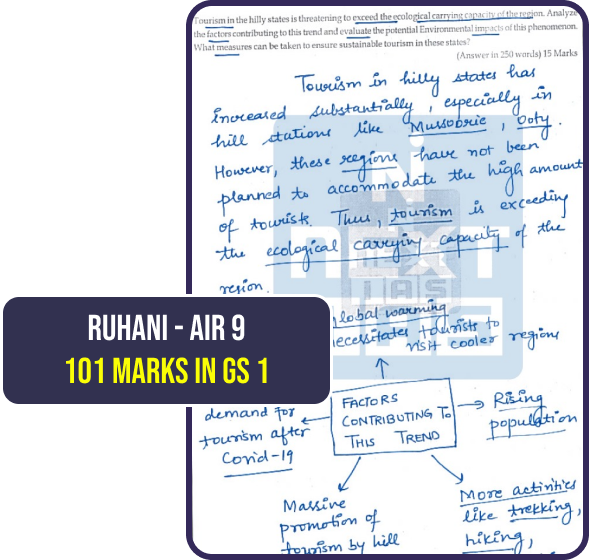 Tourism in the hilly states is threatening to exceed the ecological carrying capacity of the region. Analyze
the factors contributing to this trend and evaluate the potential Environmental impacts of this phenomenon.
What measures can be taken to ensure sustainable tourism in these states?
(Answer in 250 words) 15 Marks
Tourism in hilly states has
increased substantially, especially in
hill stations like Mussoorie, Ooty.
However, these regions have not been
planned to accommodate the high amount
of tourists. Thus, tourism is exceeding
the ecological carrying capacity of the
region.
NEXT
IAS
RUHANI - AIR 9
101 MARKS IN GS 1
lobal warming
ecessitates tourists to
visit cooler regions
demand for
tourism after
Covid-19
FACTORS
CONTRIBUTING TO
THIS TREND
Rising
population
Massive
promotion of
tourism by hill
More activities
like trekking,
hiking,